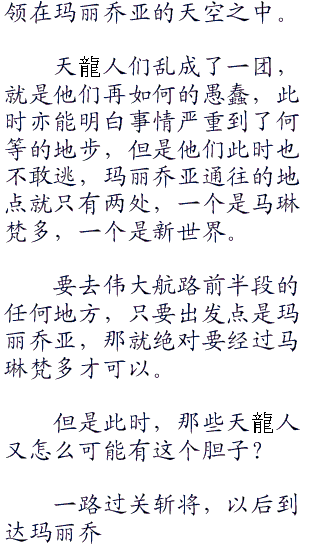 领在玛丽乔亚的天空之中。
天龍人们乱成了一团，
就是他们再如何的愚蠢，此
时亦能明白事情严重到了何
等的地步，但是他们此时也
不敢逃，玛丽乔亚通往的地
点就只有两处，一个是马琳
梵多，一个是新世界。
要去伟大航路前半段的
任何地方，只要出发点是玛
丽乔亚，那就绝对要经过马
琳梵多才可以。
但是此时，那些天龍人
又怎么可能有这个胆子？
一路过关斩将，以后到
达玛丽乔